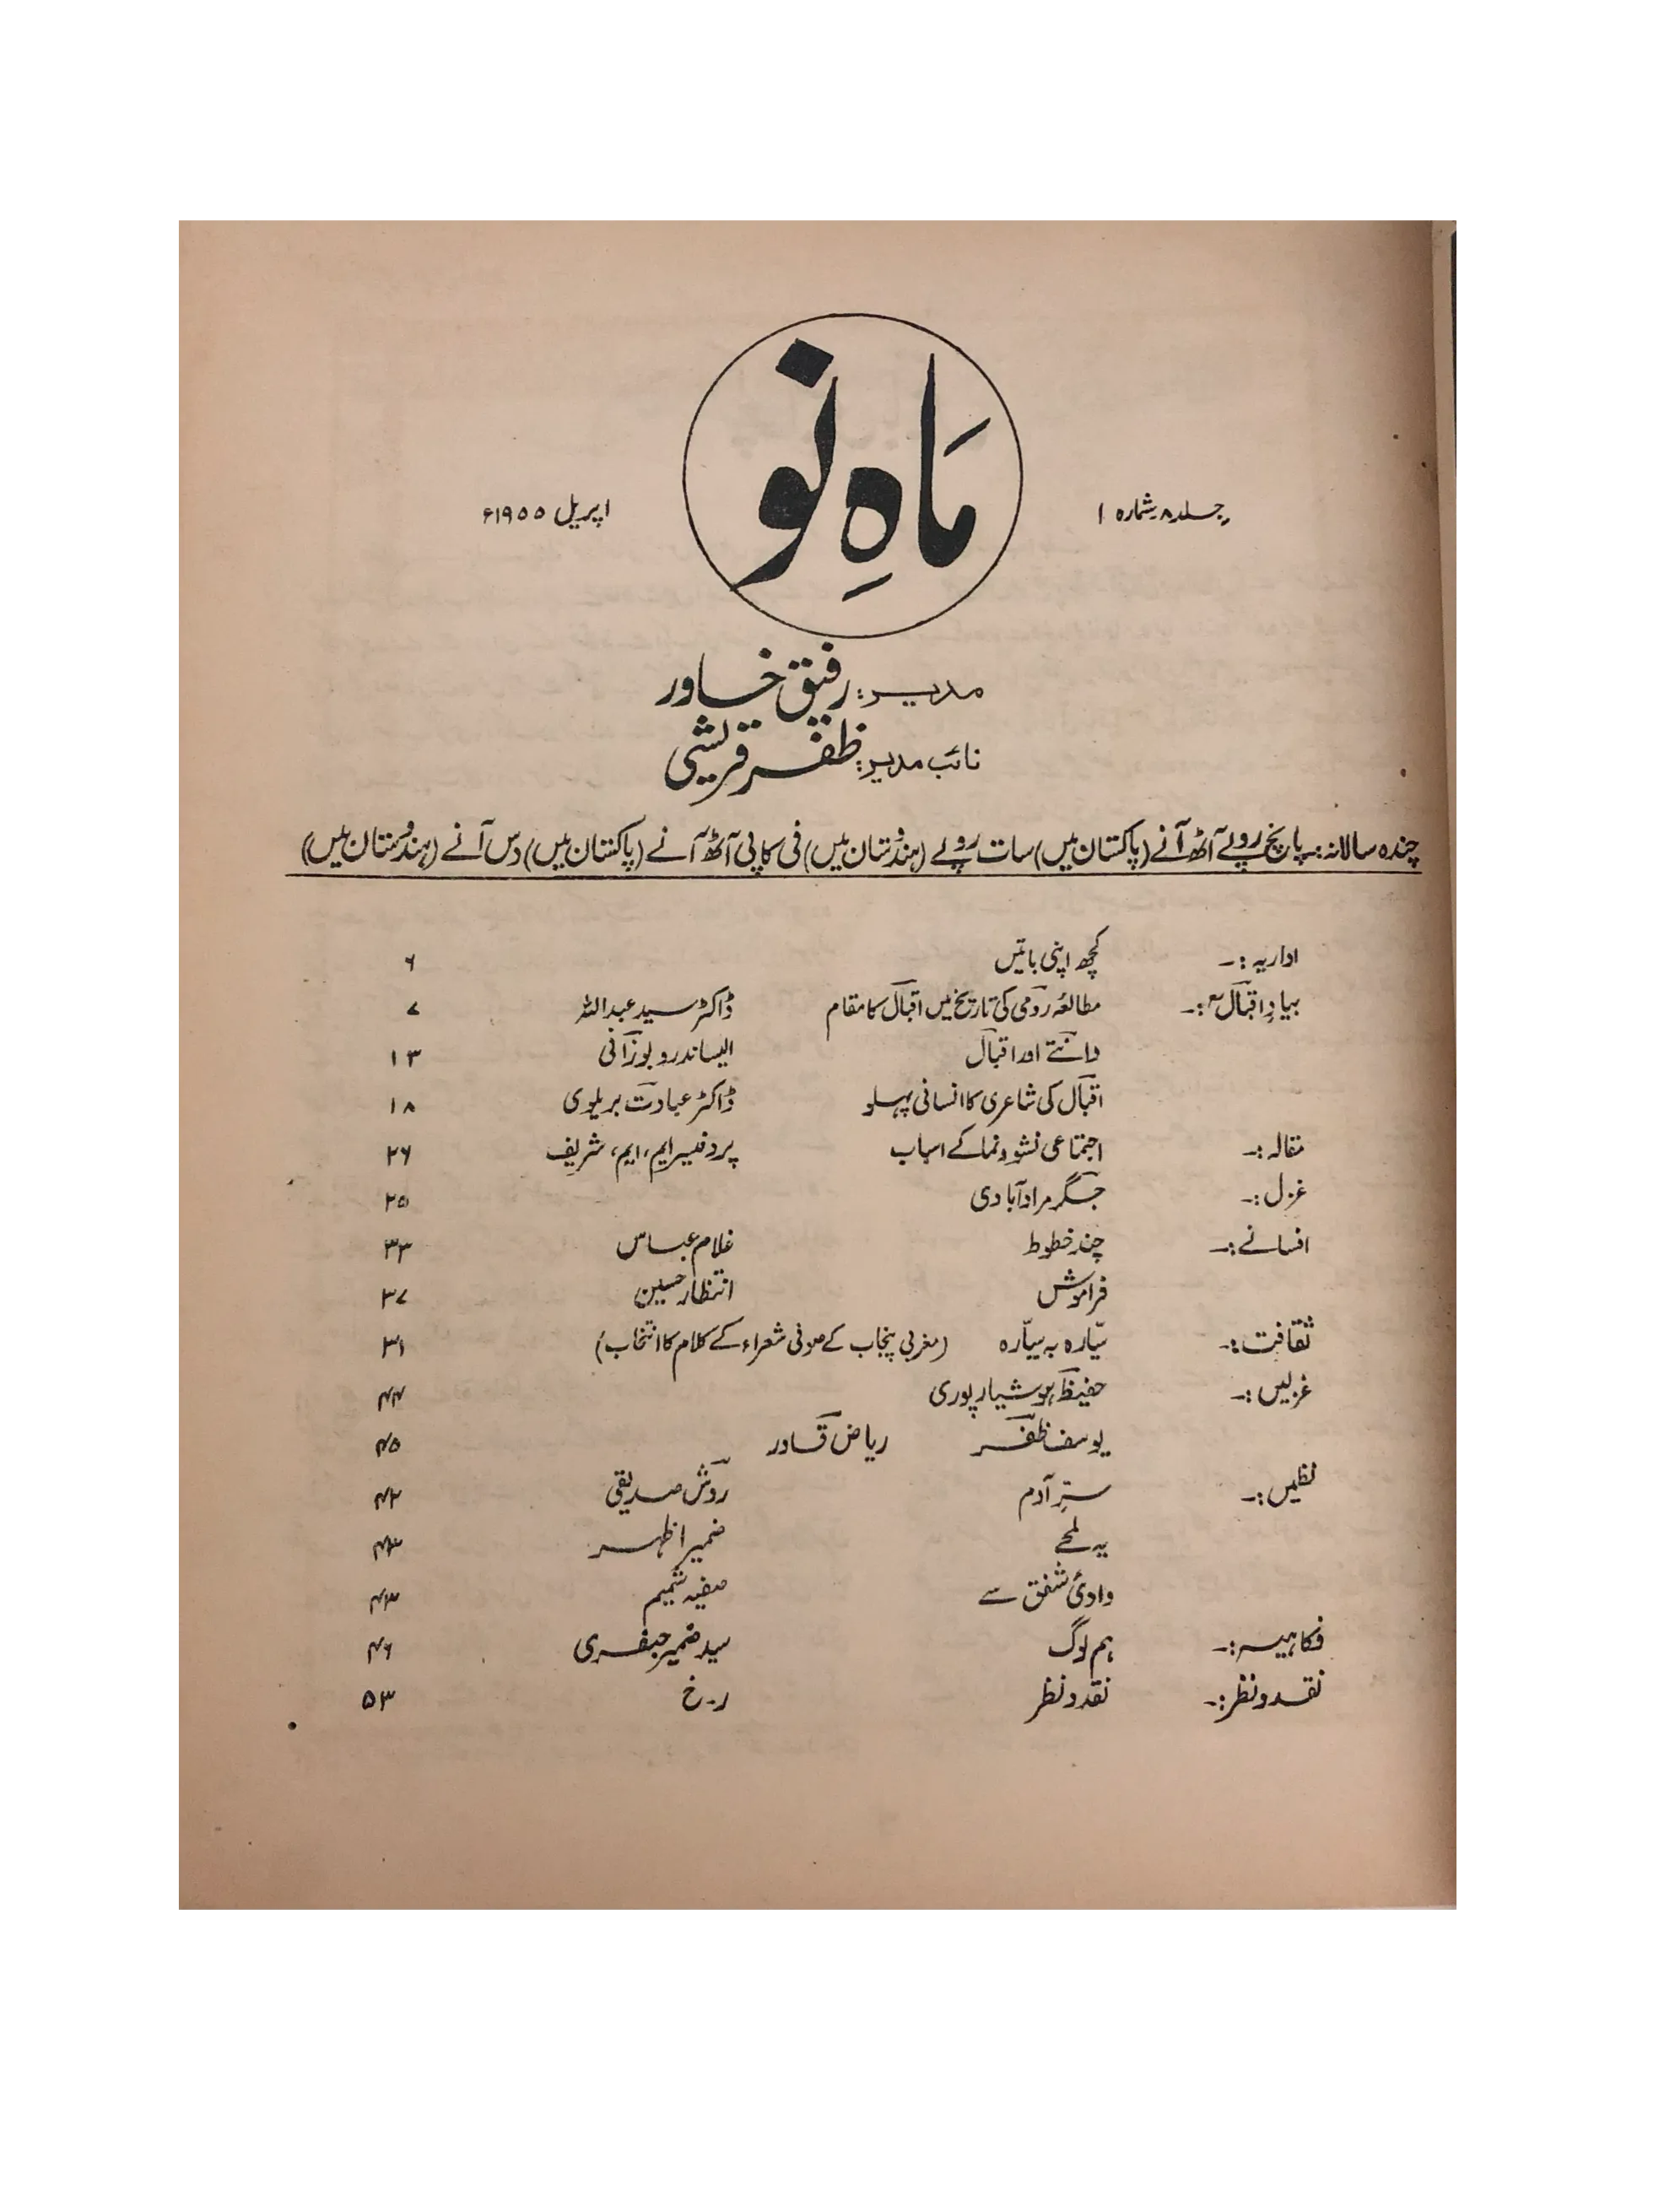 جلد ۸ شمارہ ۱
مَاہِ نو
اپریل ۱۹۵۵ء
مدیر: رفیق خاور
نائب مدیر: ظفر قریشی
چندہ سالانہ: پانچ روپے آٹھ آنے (پاکستان میں) سات روپے (ہندوستان میں) فی کاپی آٹھ آنے (پاکستان میں) دس آنے (ہندوستان میں)
اداریہ:- کچھ اپنی باتیں ۶
بیادِ اقبالؒ:- مطالعۂ رومی کی تاریخ میں اقبال کا مقام ڈاکٹر سید عبداللہ ۷
دانتے اور اقبال الیساندرو بوزآنی ۱۳
اقبال کی شاعری کا انسانی پہلو ڈاکٹر عبادت بریلوی ۱۸
مقالہ:- اجتماعی نشوونما کے اسباب پروفیسر ایم، ایم، شریف ۲۶
غزل:- جگر مرادآبادی ۲۵
افسانے:- چند خطوط غلام عباس ۳۳
فراموش انتظار حسین ۳۷
ثقافت:- سیّارہ بہ سیّارہ (مغربی پنجاب کے صوفی شعراء کے کلام کا انتخاب) ۳۱
غزلیں:- حفیظ ہوشیارپوری ۴۴
یوسف ظفر ریاض قادر ۴۵
نظمیں:- سرِّ آدم روش صدیقی ۴۲
یہ لمحے ضمیر اظہر ۴۳
وادیٔ شفق سے صفیہ شمیم ۴۳
فکاہیہ:- ہم لوگ سید ضمیر جعفری ۴۶
نقدونظر:- نقدونظر ر۔خ ۵۳